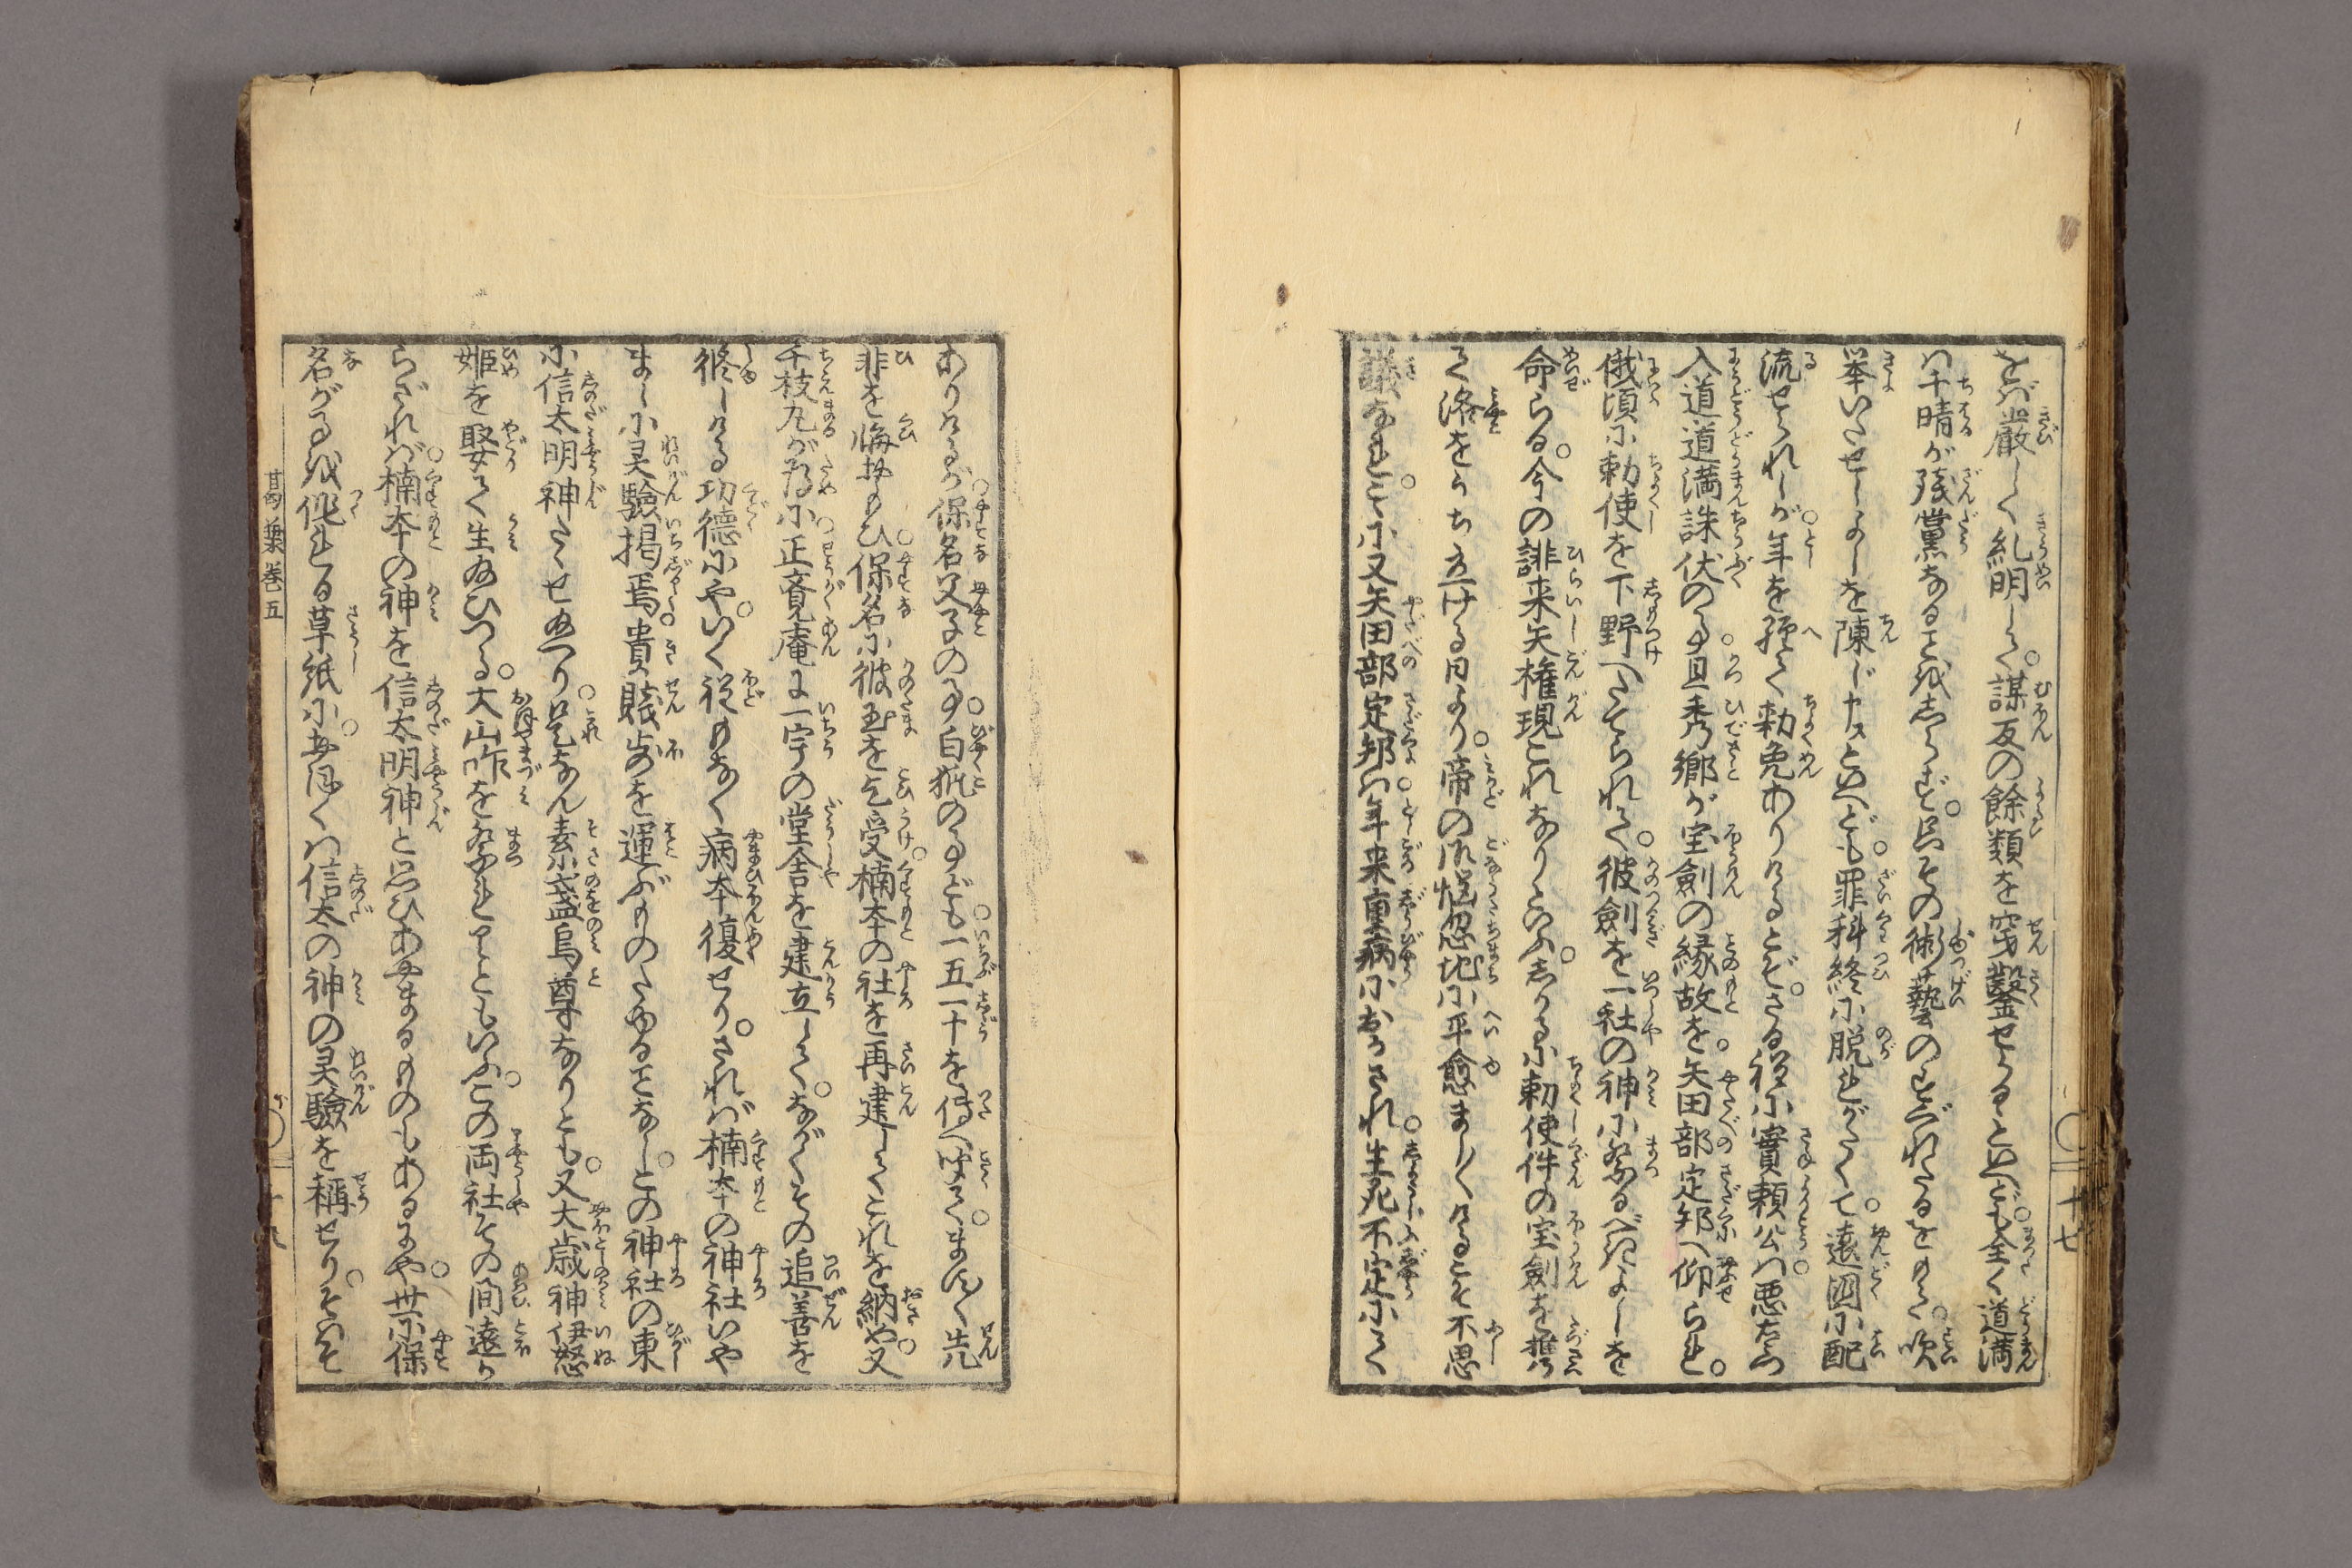 をバ嚴しく糺明して。謀反の餘類を穿鑿せらるといへども。全く道満
ハ千晴が殘黨なるを&#x2060;しらず。只その術藝のすぐれたるをもて。吹
挙いたせしよしを陳じ申スといへども。罪科終に脱れがたくて。遠國に配
流せられしが。年を經て勅免ありけるとぞ。さる程に實頼公ハ悪右衛門
入道道満誅伏の事。且秀郷が宝劍の縁故を。矢田部定邦へ仰られ。
俄頃に勅使を下野へたてられて。彼劍を一社の神に祭るべきよしを
命らる。今の誹来矢権現これなりといふ。しかるに勅使件の宝劍を携
て洛をうち立ける日より。帝の御悩忽地に平愈ましく〳〵けるこそ不思
議なれ。こゝに又矢田部定邦ハ。年来重病におかされ。生死不定にて
ありけるが。保名父子の事。白狐の事ども。一五一十を傳へ聞て。ますく先
非を悔おもひ。保名に彼玉を乞受。楠本の社を再建してこれを納や。又
千枝丸が為に。正覚庵に一宇の堂舎を建立して。ながくその追善を
修しける功徳にや。いく程もなく病本復せり。されば楠本の神社いや
ましに灵驗掲焉。貴賤歩を運ぶものたゆることなし。この神社の東
に信太明神たゝせ玉へり。是なん素盞烏尊なりとも。又大歳神伊怒
姫を娶て生玉ひつる。大山咋を祭れりともいふ。この両社その間遠か
らざれば。楠本の神を信太明神と思ひあやまるものもあるにや。世に保
名がうへを作れる草紙に。多くハ信太の神の灵驗を稱せり。そハそ
葛葉巻五
十七